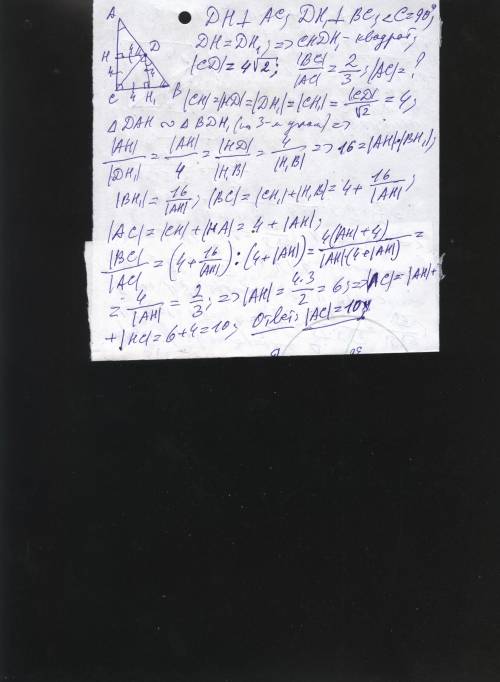 A
H
4
4
D
4
4
C
4
H₁
B
DH ⊥ AC; DH₁ ⊥ BC; ∠C=90°;
DH=DH₁; => CHDH₁ - квадрат;
|CD|=4√2; |BC|/|AC| = 2/3; |AC|=?
|CH|=|HD|=|DH₁|=|CH₁|=|CD|/√2=4;
△DAH ∾ △BDH₁ (по 3-м углам) =>
|AH|/|DH₁| = |AH|/4 = |HD|/|H₁B| = 4/|H₁B| => 16=|AH|·|BH₁|;
|BH₁|=16/|AH|; |BC|=|CH₁|+|H₁B|=4+16/|AH|;
|AC|=|CH|+|HA|=4+|AH|;
|BC|/|AC| = (4+16/|AH|):(4+|AH|)=4(|AH|+4)/|AH|·(4+|AH|)=
= 4/|AH| = 2/3; => |AH|=4·3/2=6; => |AC|=|AH|+
+|HC|=6+4=10; Ответ: |AC|=10;